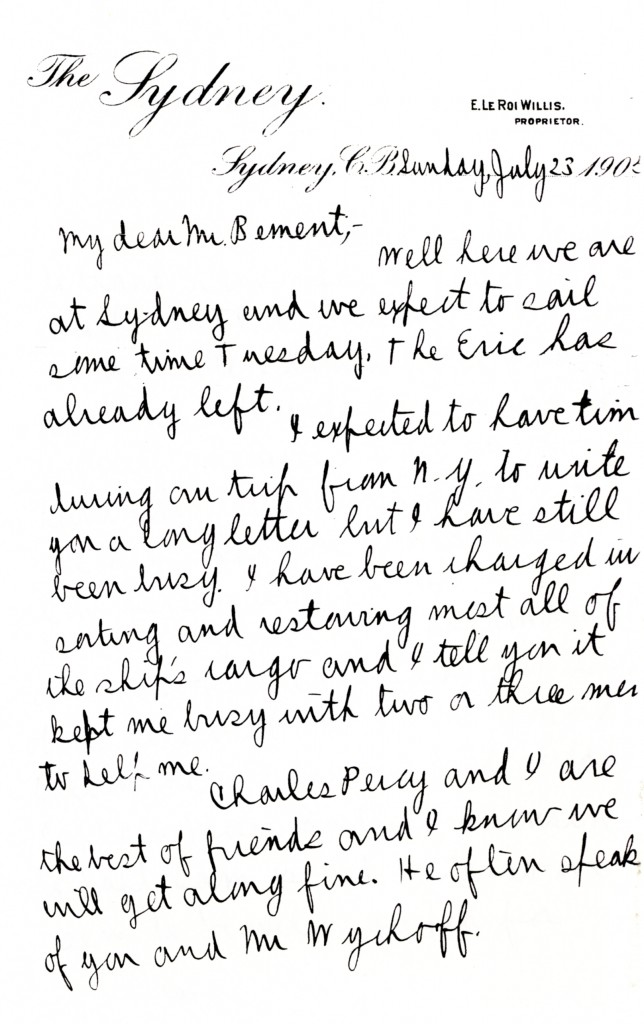 The Sydney.
E. LE ROI WILLIS.
PROPRIETOR.
Sydney, C.B. Sunday, July 23 190
My dear Mr. Bement,-
Well here we are
at Sydney and we expect to sail
some time Tuesday. The Eric has
already left.
I expected to have tim
during our trip from N.Y. to write
you a long letter but I have still
been busy. I have been charged in
sorting and restowing most all of
the ship's cargo and I tell you it
kept me busy with two or three men
to help me.
Charles Percy and I are
the best of friends and I know we
will get along fine. He often speak
of you and Mr Wyckoff.